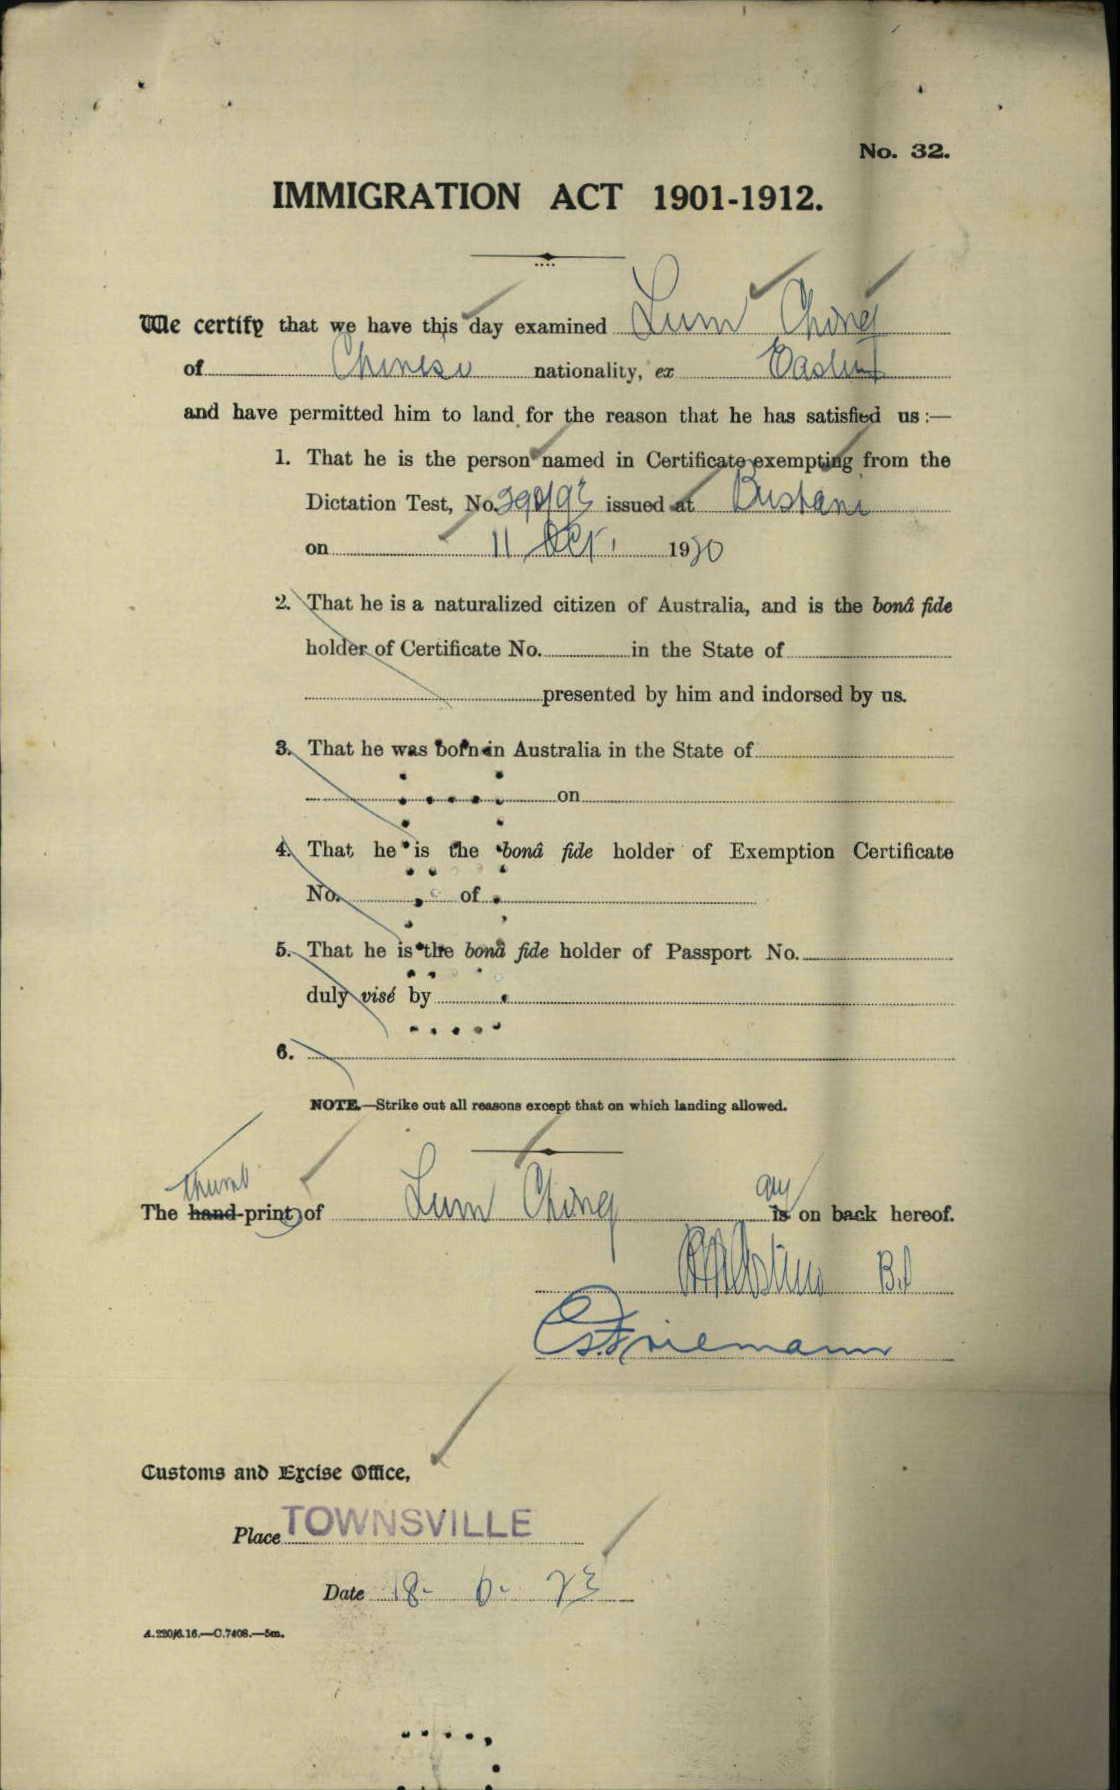 No. 32.
IMMIGRATION ACT 1901-1912.
We certify that we have this day examined Lum Chong
of Chinese nationality, ex Eastern
and have permitted him to land for the reason that he has satisfied us:—
1. That he is the person named in Certificate exempting from the
Dictation Test, No. issued at Brisbane
on 11 Oct. 1920
2. That he is a naturalized citizen of Australia, and is the bonâ fide
holder of Certificate No. in the State of
presented by him and indorsed by us.
3. That he was born in Australia in the State of
on
4. That he is the bonâ fide holder of Exemption Certificate
No. of
5. That he is the bonâ fide holder of Passport No.
duly visé by
6.
NOTE.—Strike out all reasons except that on which landing allowed.
thumb are
The hand-print of Lum Chong is on back hereof.
Customs and Excise Office,
Place TOWNSVILLE
Date 18- 6- 23
A.220/6.16.—C.7408.—5m.